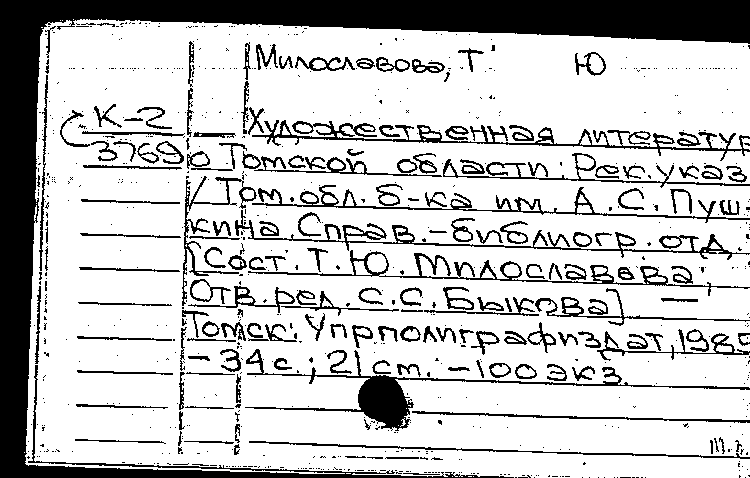 Милославова, Т Ю
К-2
Художественная литератур
3769 о Томской области: Рек. указ
/ Том. обл. б-ка им. А.С. Пуш-
кина. Справ.-библиогр. отд.;
[Сост. Т.Ю. Милославова;
Отв. ред. С.С. Быкова] —
Томск: Упрполиграфиздат, 1985
- 34 с.; 21 cm. - 100 экз.